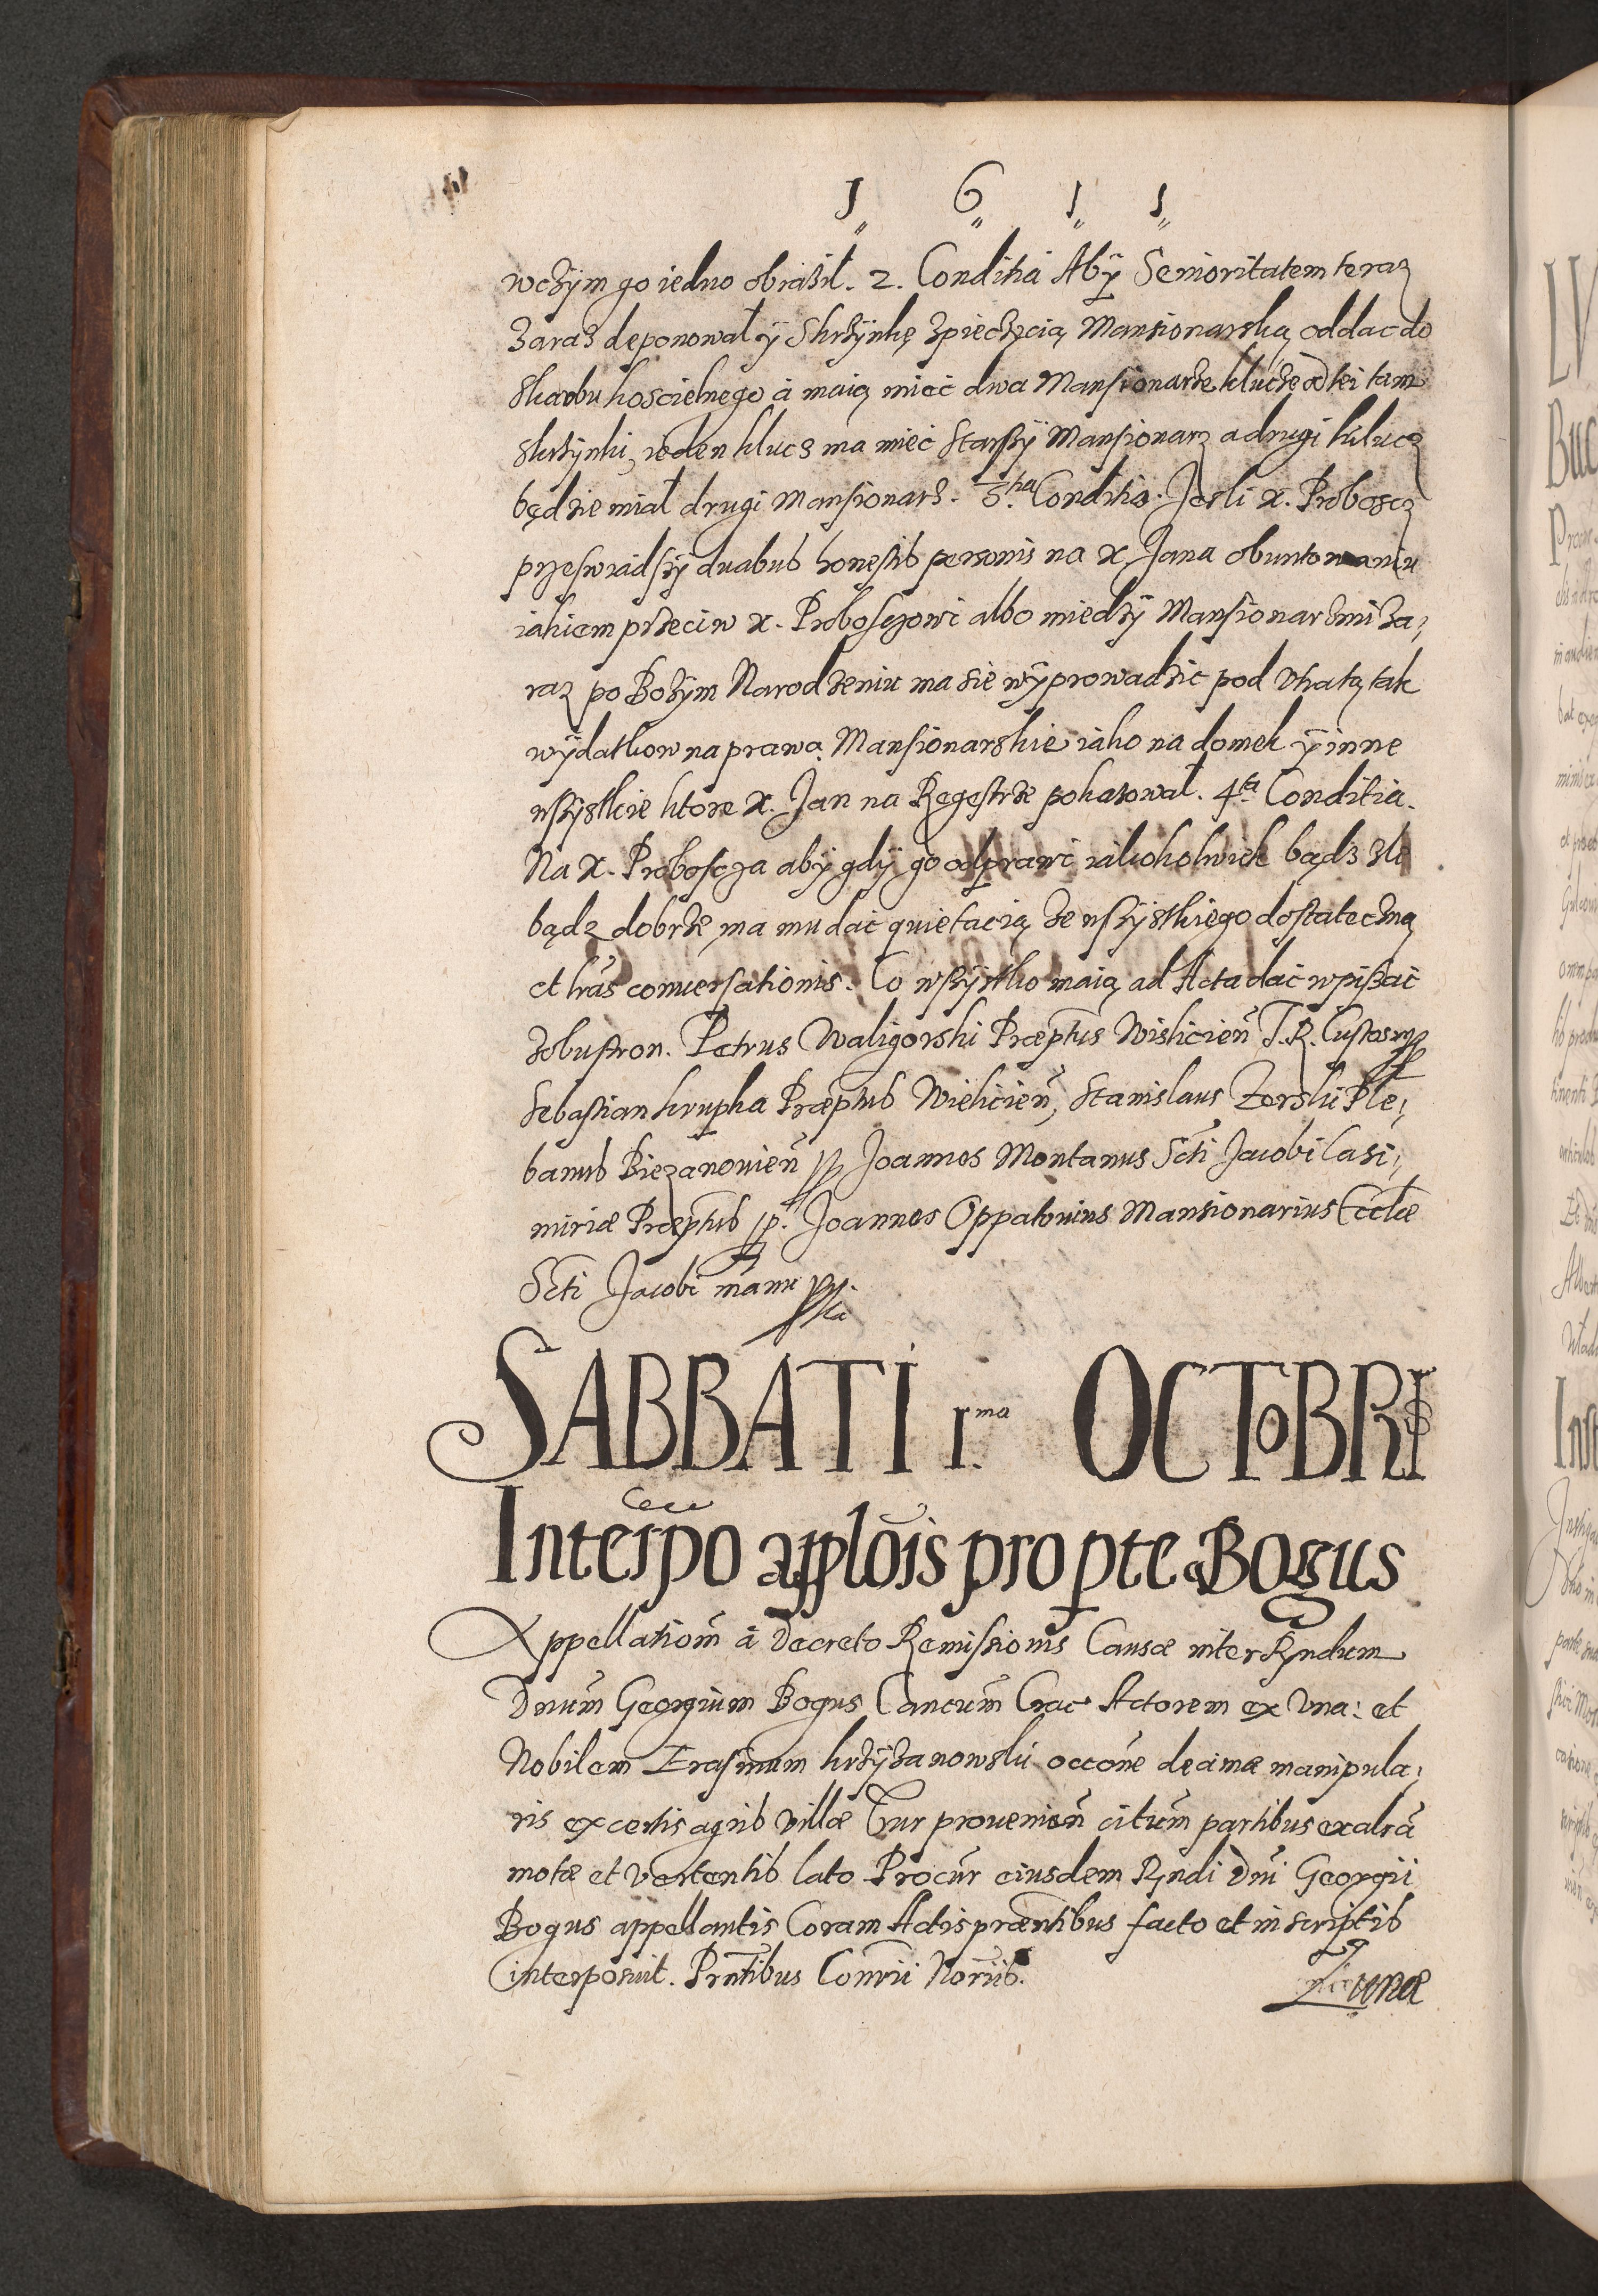 1611
wczym go iedno obraził. 2. Conditia Abÿ Senioritatem teraz
zaraz deponował ÿ Skrzÿnkę zpieczęcią Mansionarską oddac do
skarbu koscielnego á maią mieć dwa Mansionarze klucze od tei tam
skrzÿnki, ieden klucz ma mieć starszÿ Mansionarz a drugi klucz
będzie miał drugi Mansionarz. 3tia Conditia. Jesli x. Proboscz
przeswiadszÿ duabus honestis personis na x Jana obuntowaniu
iakiem przeciw x. Proboszczowi albo miedzÿ Mansionarzmi za,
raz po Bożÿm Narodzeniu ma sie wÿprowadzic pod vtratą tak
wÿdatkow na prawa Mansionarskie iako na domek ÿ inne
wszÿstkie ktore x. Jan na Regestrze pokazował. 4ta Conditia.
Na x. Proboscza abÿ gdÿ go odprawi iakokolwiek bądz zle
bądz dobrze ma mu dać quietacią ze wszÿstkiego dostateczną
et lras conuersationis. Co wszÿstko maią ad Acta dać wpisać
zobustron. Petrus Waligorski Præptus Wislicien T.R. Custos mp
Sebastian Krupka Præptus Wielicien, Stanislaus Zorski Ple,
banus Biezanouien mp Joannes Montanus Scti Jacobi Casi,
miriæ Præptus mp. Joannes Oppatouius Mansionarius Eccliæ
Scti Jacobi manu ppa
SABBATI 1.ma OCTOBRIS
Interpo applois pro pte Bogus
Appellationem à Decreto Remissionis Causæ inter Rndum
Dnum Georgium Bogus Cancum Crac Actorem ex vna: et
Nobilem Erasmum Krzÿzanowski occone decimæ manipula,
ris ex certis agris villæ Tur prouenien citum partibus ex altra
motæ et vertentis lato Procur eiusdem Rndi Dni Georgii
Bogus appellantis Coram Actis præntibus facto et in scriptis
interposuit. Prntibus Comrii Noriis.